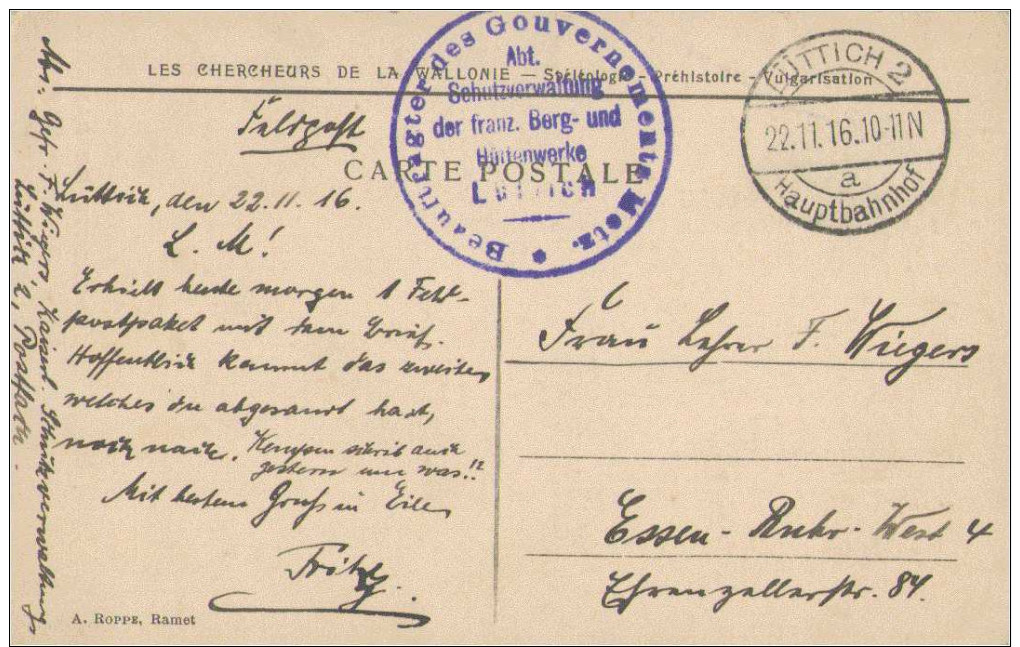 LES CHERCHEURS DE LA WALLONIE — Spéléologie - Préhistoire - Vulgarisation
CARTE POSTALE
Beauftragter des Gouvernements Metz.
Abt.
Schutzverwaltung
der franz. Berg- und
Hüttenwerke
Lüttich
LÜTTICH 2
22.11.16.10-11N
a
Hauptbahnhof
Feldpost
Lüttich, den 22.11.16.
L. M!
Erhielt heute morgen 1 Feld-
postpaket mit dem Brief.
Hoffentlich kommt das zweite,
welches du abgesandt hast,
noch nach. Kempen schrieb auch
gestern was!!
Mit bestem Gruß in Eile
Fritz.
Frau Lehrer F. Wiegers
Essen-Ruhr-West 4
Ehrenzellerstr. 84.
Gefr. F. Wiegers, Kaiserl. Schutzverwaltung,
Lüttich 2,
A. ROPPE, Ramet